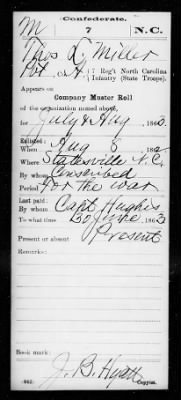 Confederate.
M 7 N.C.
Thos L. Miller
Pvt, Co. A, 7 Reg't North Carolina
Infantry (State Troops).
Appears on
Company Muster Roll
of the organization named above,
for July & Aug, 1863.
Enlisted:
When Aug 8, 1862
Where Statesville N.C.
By whom Conscribed
Period for the war
Last paid:
By whom Capt Hughes
To what time 30 June, 1863
Present or absent Present
Remarks:
Book mark:
(642) J. B. Hyatt
Copyist.